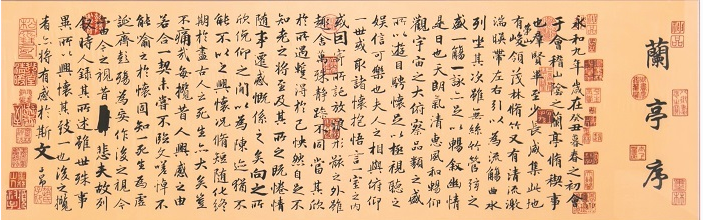 蘭亭序
永和九年歲在癸丑暮春之初會
于會稽山陰之蘭亭脩稧事
也群賢畢至少長咸集此地
有崇山峻領茂林脩竹又有清流激
湍暎帶左右引以為流觴曲水
列坐其次雖無絲竹管弦之
盛一觴一詠亦足以暢敘幽情
是日也天朗氣清惠風和暢仰
觀宇宙之大俯察品類之盛
所以遊目騁懷足以極視聽之
娛信可樂也夫人之相與俯仰
一世或取諸懷抱悟言一室之內
或因寄所託放浪形骸之外雖
趣舍萬殊靜躁不同當其欣
於所遇暫得於己快然自足不
知老之將至及其所之既惓情
隨事遷感慨係之矣向之所
欣俛仰之閒以為陳迹猶不
能不以之興懷況脩短隨化終
期於盡古人云死生亦大矣豈
不痛哉每攬昔人興感之由
若合一契未嘗不臨文嗟悼不
能喻之於懷固知一死生為虛
誕齊彭殤為妄作後之視今
亦由今之視昔悲夫故列
敘時人錄其所述雖世殊事
異所以興懷其致一也後之攬
者亦將有感於斯文